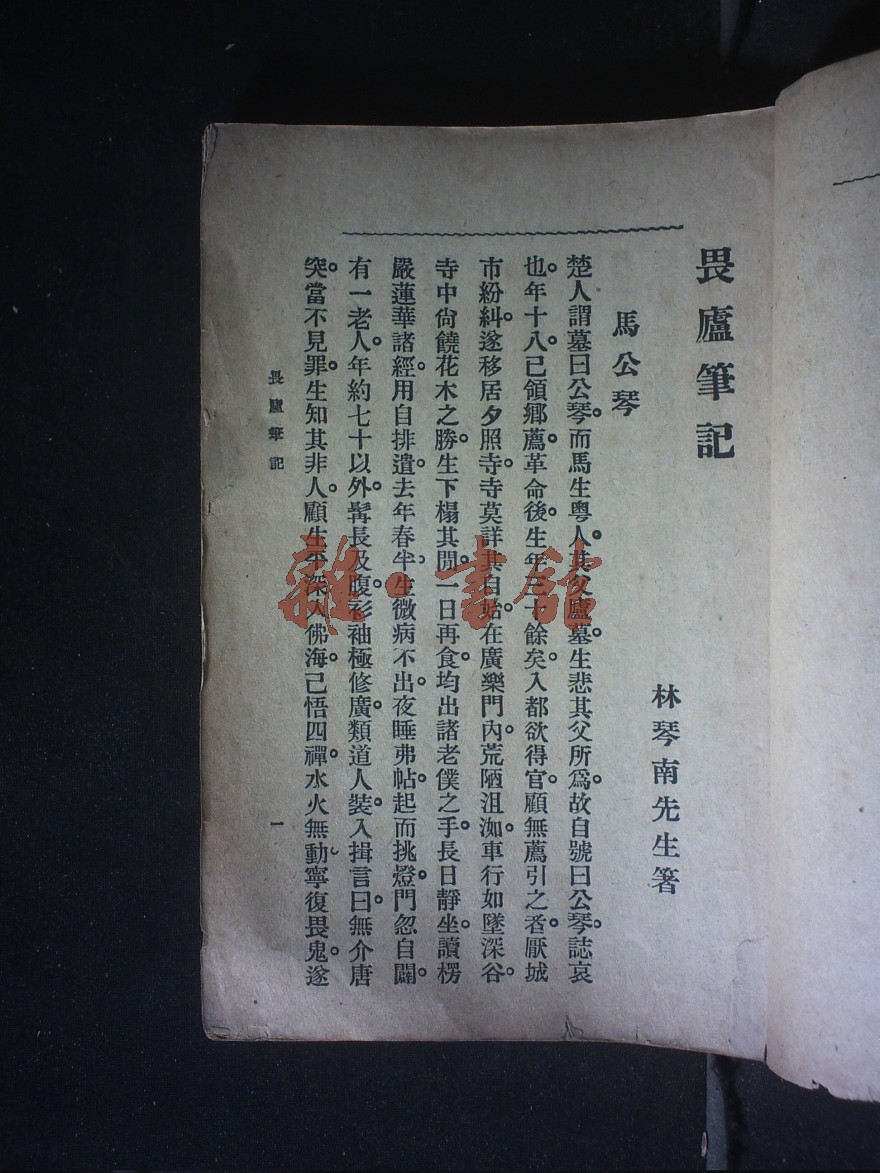 畏廬筆記
林琴南先生箸
馬公琴
楚人謂墓曰公琴。而馬生粵人。其父廬墓。生悲其父所爲。故自號曰公琴。誌哀
也。年十八。已領鄉薦。革命後。生年三十餘矣。入都欲得官。顧無薦引之者。厭城
市紛糾。遂移居夕照寺。寺莫詳其自始。在廣樂門內。荒陋沮洳。車行如墜深谷。
寺中尙饒花木之勝。生下榻其閒。一日再食。均出諸老僕之手。長日靜坐。讀楞
嚴蓮華諸經。用自排遣。去年春半。生微病不出。夜睡弗帖。起而挑燈。門忽自闢。
有一老人。年約七十以外。髯長及腹。衫袖極修廣。類道人裝。入揖言曰。無介唐
突。當不見罪。生知其非人。顧生平深入佛海。已悟四禪。水火無動。寧復畏鬼。遂
畏廬筆記
一
雜·書館